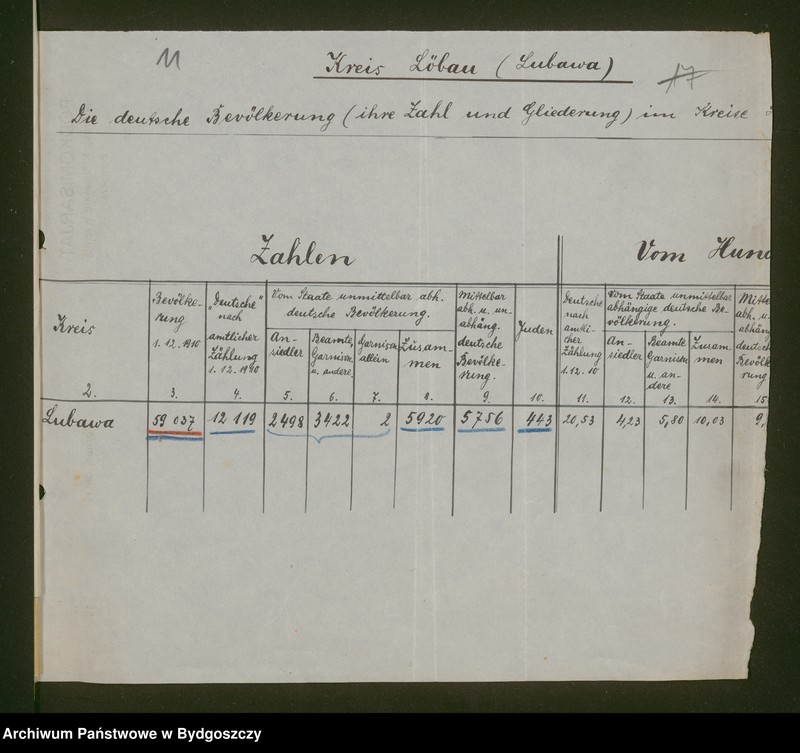 11
Kreis Löbau (Lubawa)
17
Die deutsche Bevölkerung (ihre Zahl und Gliederung) im Kreise
Zahlen
Vom Hun
Kreis
2.
Bevölke-
rung
1.12.1910
3.
"Deutsche"
nach
amtlicher
Zählung
1.12.1910
4.
Vom Staate unmittelbar abh.
deutsche Bevölkerung.
An-
siedler
5.
Beamte,
Garnison
u. andere.
6.
Garnison
allein
7.
Zusam-
men
8.
Mittelbar
abh. u. un-
abhäng.
deutsche
Bevölke-
rung.
9.
Juden
10.
Deutsche
nach
amtli-
cher
Zählung
1.12.10
11.
Vom Staate unmittelbar
abhängige deutsche Be-
völkerung.
An-
siedler
12.
Beamte
Garnison
u. an-
dere
13.
Zusam
men
14.
Mitte
abh. u.
abhäng
deutsch
Bevölk
rung
15
Lubawa 59 037 12 119 2498 3422 2 5920 5756 443 20,53 4,23 5,80 10,03 9,
Archiwum Państwowe w Bydgoszczy